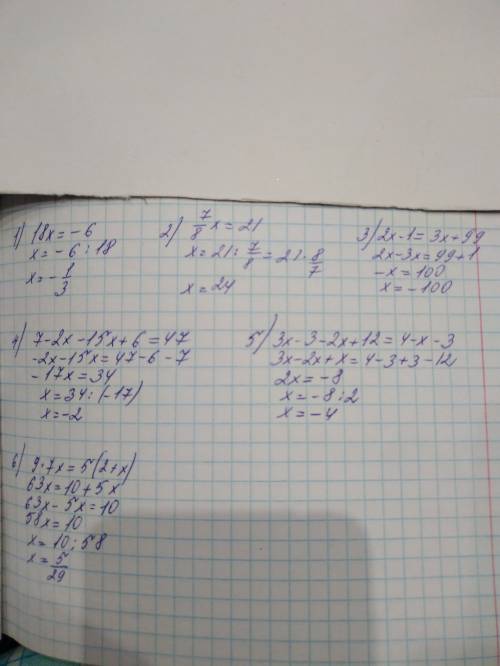 1) 18x = -6
x = -6 : 18
x = -1/3
2) 7/8 x = 21
x = 21 : 7/8 = 21 · 8/7
x = 24
3) 2x - 1 = 3x + 99
2x - 3x = 99 + 1
-x = 100
x = -100
4) 7 - 2x - 15x + 6 = 47
-2x - 15x = 47 - 6 - 7
-17x = 34
x = 34 : (-17)
x = -2
5) 3x - 3 - 2x + 12 = 4 - x - 3
3x - 2x + x = 4 - 3 + 3 - 12
2x = -8
x = -8 : 2
x = -4
6) 9 · 7x = 5(2 + x)
63x = 10 + 5x
63x - 5x = 10
58x = 10
x = 10 : 58
x = 5/29